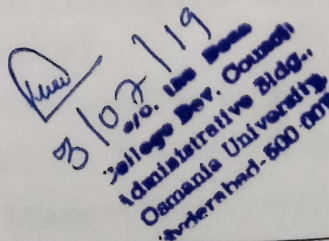 3/07/19
O/o. the Dean
College Dev. Council
Administrative Bldg.,
Osmania University,
Hyderabad-500 007